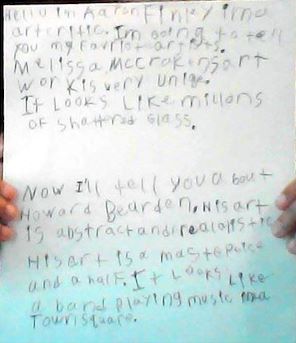 Hello im Aaron Finley ima
artcritic. Im going to tell
you my favriot artists.
Melissa Mccrakens art
work is very uniqe.
It Looks Like millons
of shattered glass.
Now I'll tell you about
Howard Bearden. His art
is abstract and realaistic
His art is a masterpeice
and a half. It Looks Like
a band playing music ina
Townsquare.